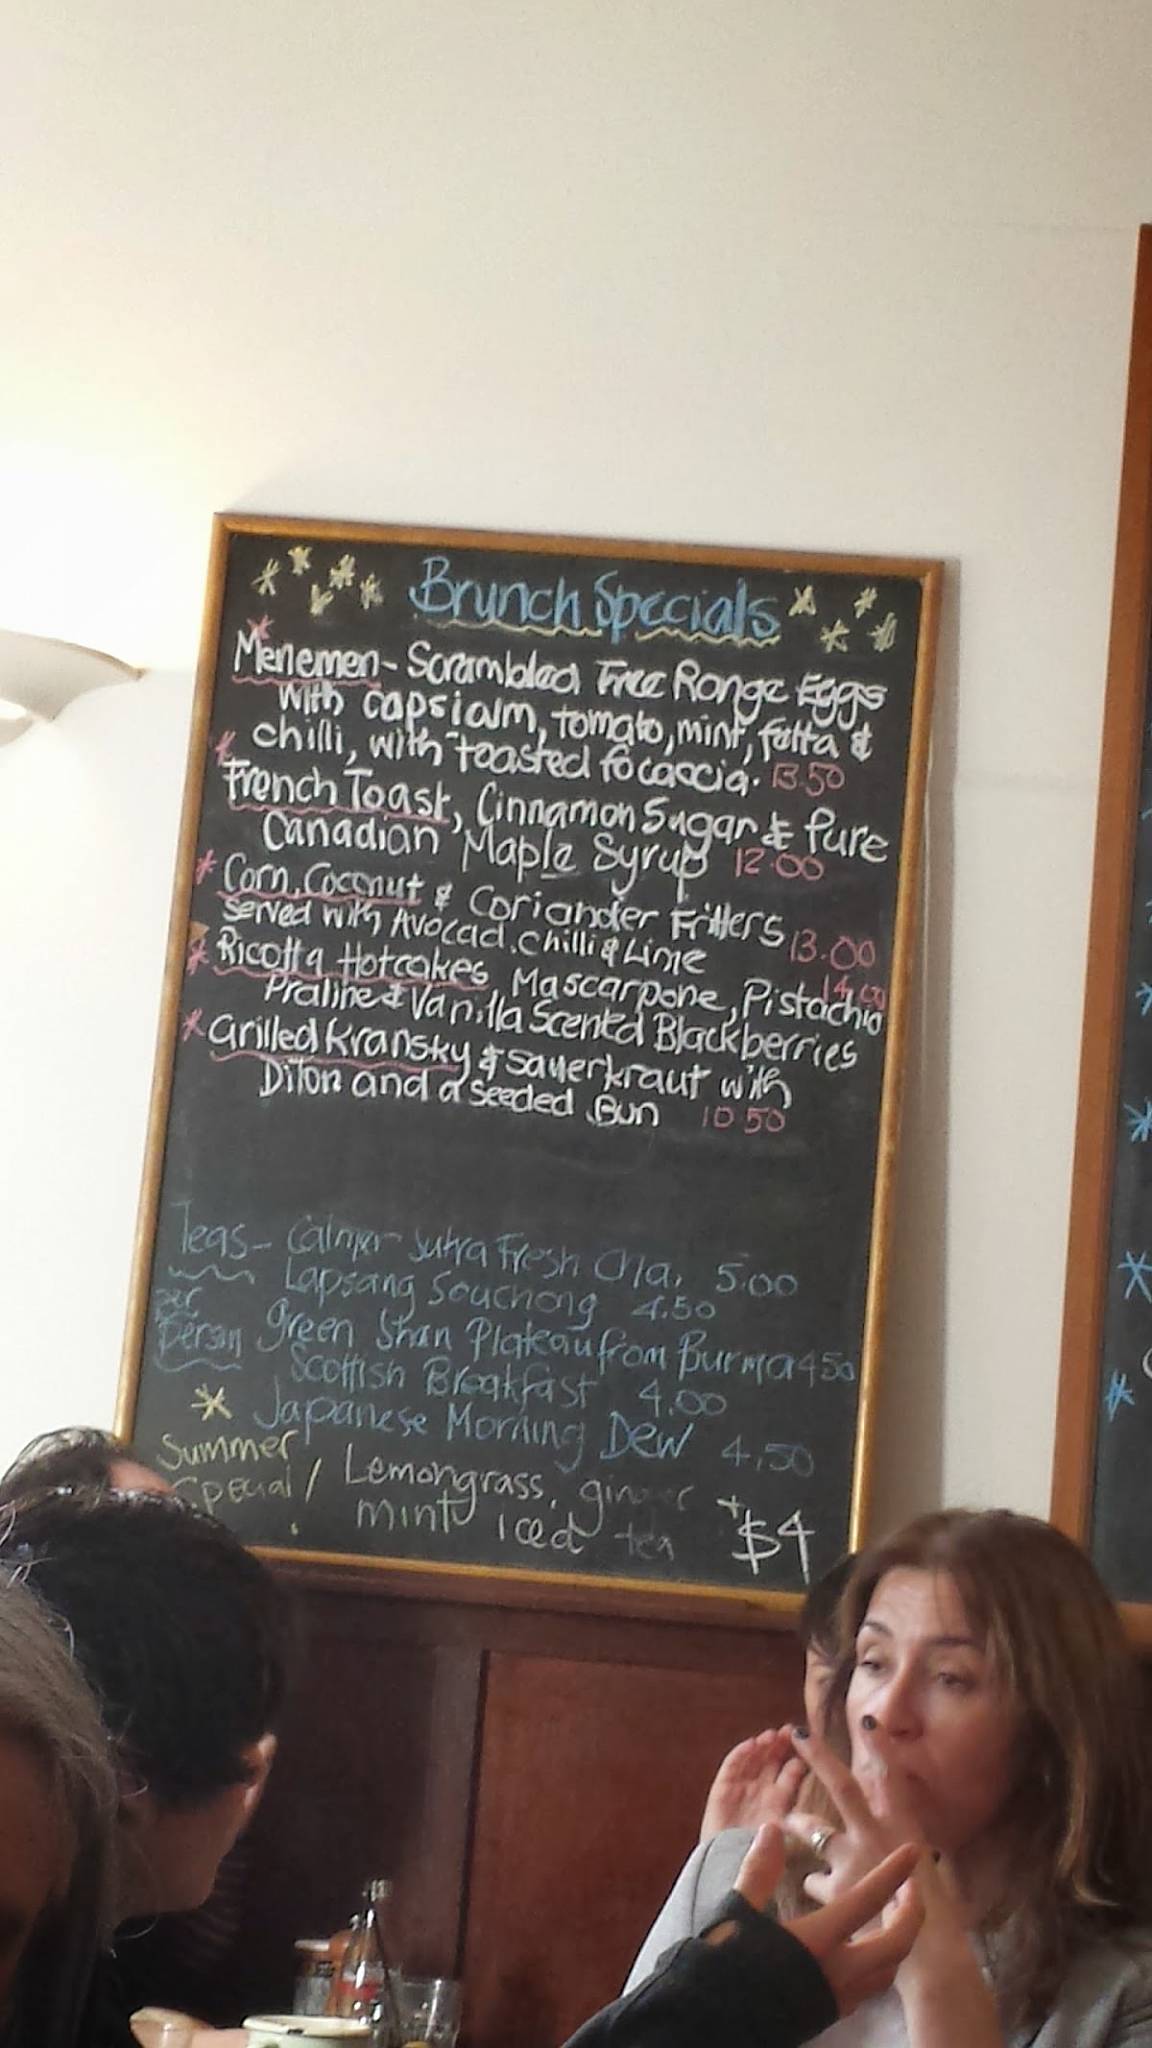 Brunch Specials
Menemen - Scrambled Free Range Eggs
with capsiaim, tomato, mint, fetta &
chilli, with toasted focaccia. 13.50
French Toast, Cinnamon Sugar & Pure
Canadian Maple Syrup 12.00
Corn, Coconut & Coriander Fritters
served with Avocad, Chilli & Lime 13.00
Ricotta Hotcakes, Mascarpone, Pistachio 14.00
Praline & Vanilla Scented Blackberries
Grilled Kransky & Sauerkraut with
Dijon and a seeded Bun 10 50
Teas - Calmer Sutra Fresh Chai 5.00
Lapsang Souchong 4.50
per Green Shan Plateau from Burma 450
person Scottish Breakfast 4.00
* Japanese Morning Dew 4.50
Summer
Special / Lemongrass, ginger +
mint iced tea $4